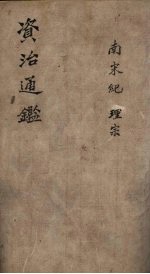 資治通鑑
南宋紀 理宗